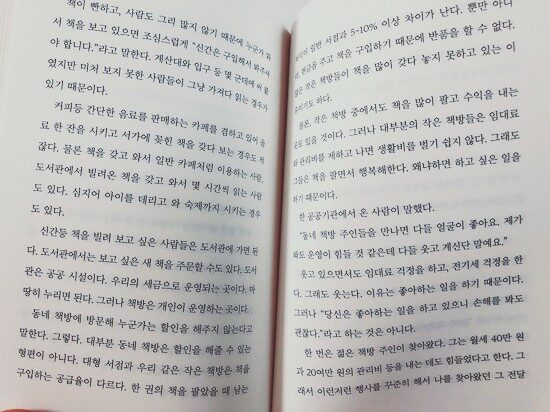 책이 빤하고, 사람도 그리 많지 않기 때문에 누군가 와
서 책을 보고 있으면 조심스럽게 "신간은 구입해서 봐주셔
야 합니다."라고 말한다. 계산대와 입구 등 몇 군데에 써 붙
였지만 미처 보지 못한 사람들이 그냥 가져다 읽는 경우가
있기 때문이다.
커피등 간단한 음료를 판매하는 카페를 겸하고 있어 음
료 한 잔을 시키고 서가에 꽂힌 책을 갖다 보는 경우도 적
잖다. 물론 책을 갖고 와서 일반 카페처럼 이용하는 사람,
도서관에서 빌려온 책을 갖고 와서 몇 시간씩 읽는 사람
도 있다. 심지어 아이를 데리고 와 숙제까지 시키는 경우
도 있다.
신간등 책을 빌려 보고 싶은 사람들은 도서관에 가면 된
다. 도서관에서는 보고 싶은 새 책을 주문할 수도 있다. 도서
관은 공공 시설이다. 우리의 세금으로 운영되는 곳이다. 마
땅히 누리면 된다. 그러나 책방은 개인이 운영하는 곳이다.
동네 책방에 방문해 누군가는 할인을 해주지 않는다고
말한다. 그렇다. 대부분 동네 책방은 할인을 해줄 수 있는
형편이 아니다. 대형 서점과 우리 같은 작은 책방은 책을
구입하는 공급율이 다르다. 한 권의 책을 팔았을 때 남는
일반 서점과 5-10% 이상 차이가 난다. 뿐만 아니
현금을 주고 책을 구입하기 때문에 반품을 할 수 없다.
작은 책방들이 책을 많이 갖다 놓지 못하고 있는 이
이기도 하다.
물론, 작은 책방 중에서도 책을 많이 팔고 수익을 내는
곳도 있을 것이다. 그러나 대부분의 작은 책방들은 임대료
와 관리비를 제하고 나면 생활비를 벌기 쉽지 않다. 그래도
그들은 책을 팔면서 행복해한다. 왜냐하면 하고 싶은 일을
하기 때문이다.
한 공공기관에서 온 사람이 말했다.
"동네 책방 주인들을 만나면 다들 얼굴이 좋아요. 제가
봐도 운영이 힘들 것 같은데 다들 웃고 계신단 말예요."
웃고 있으면서도 임대료 걱정을 하고, 전기세 걱정을 한
다. 그래도 웃는다. 이유는 좋아하는 일을 하기 때문이다.
그러나 "당신은 좋아하는 일을 하고 있으니 손해를 봐도
괜찮다."라고 하는 것은 아니다.
한 번은 젊은 책방 주인이 찾아왔다. 그는 월세 40만 원
과 20여만 원의 관리비 등을 내는 데도 힘들었다고 한다. 그
래서 이런저런 행사를 꾸준히 해서 나를 찾아왔던 그 전달